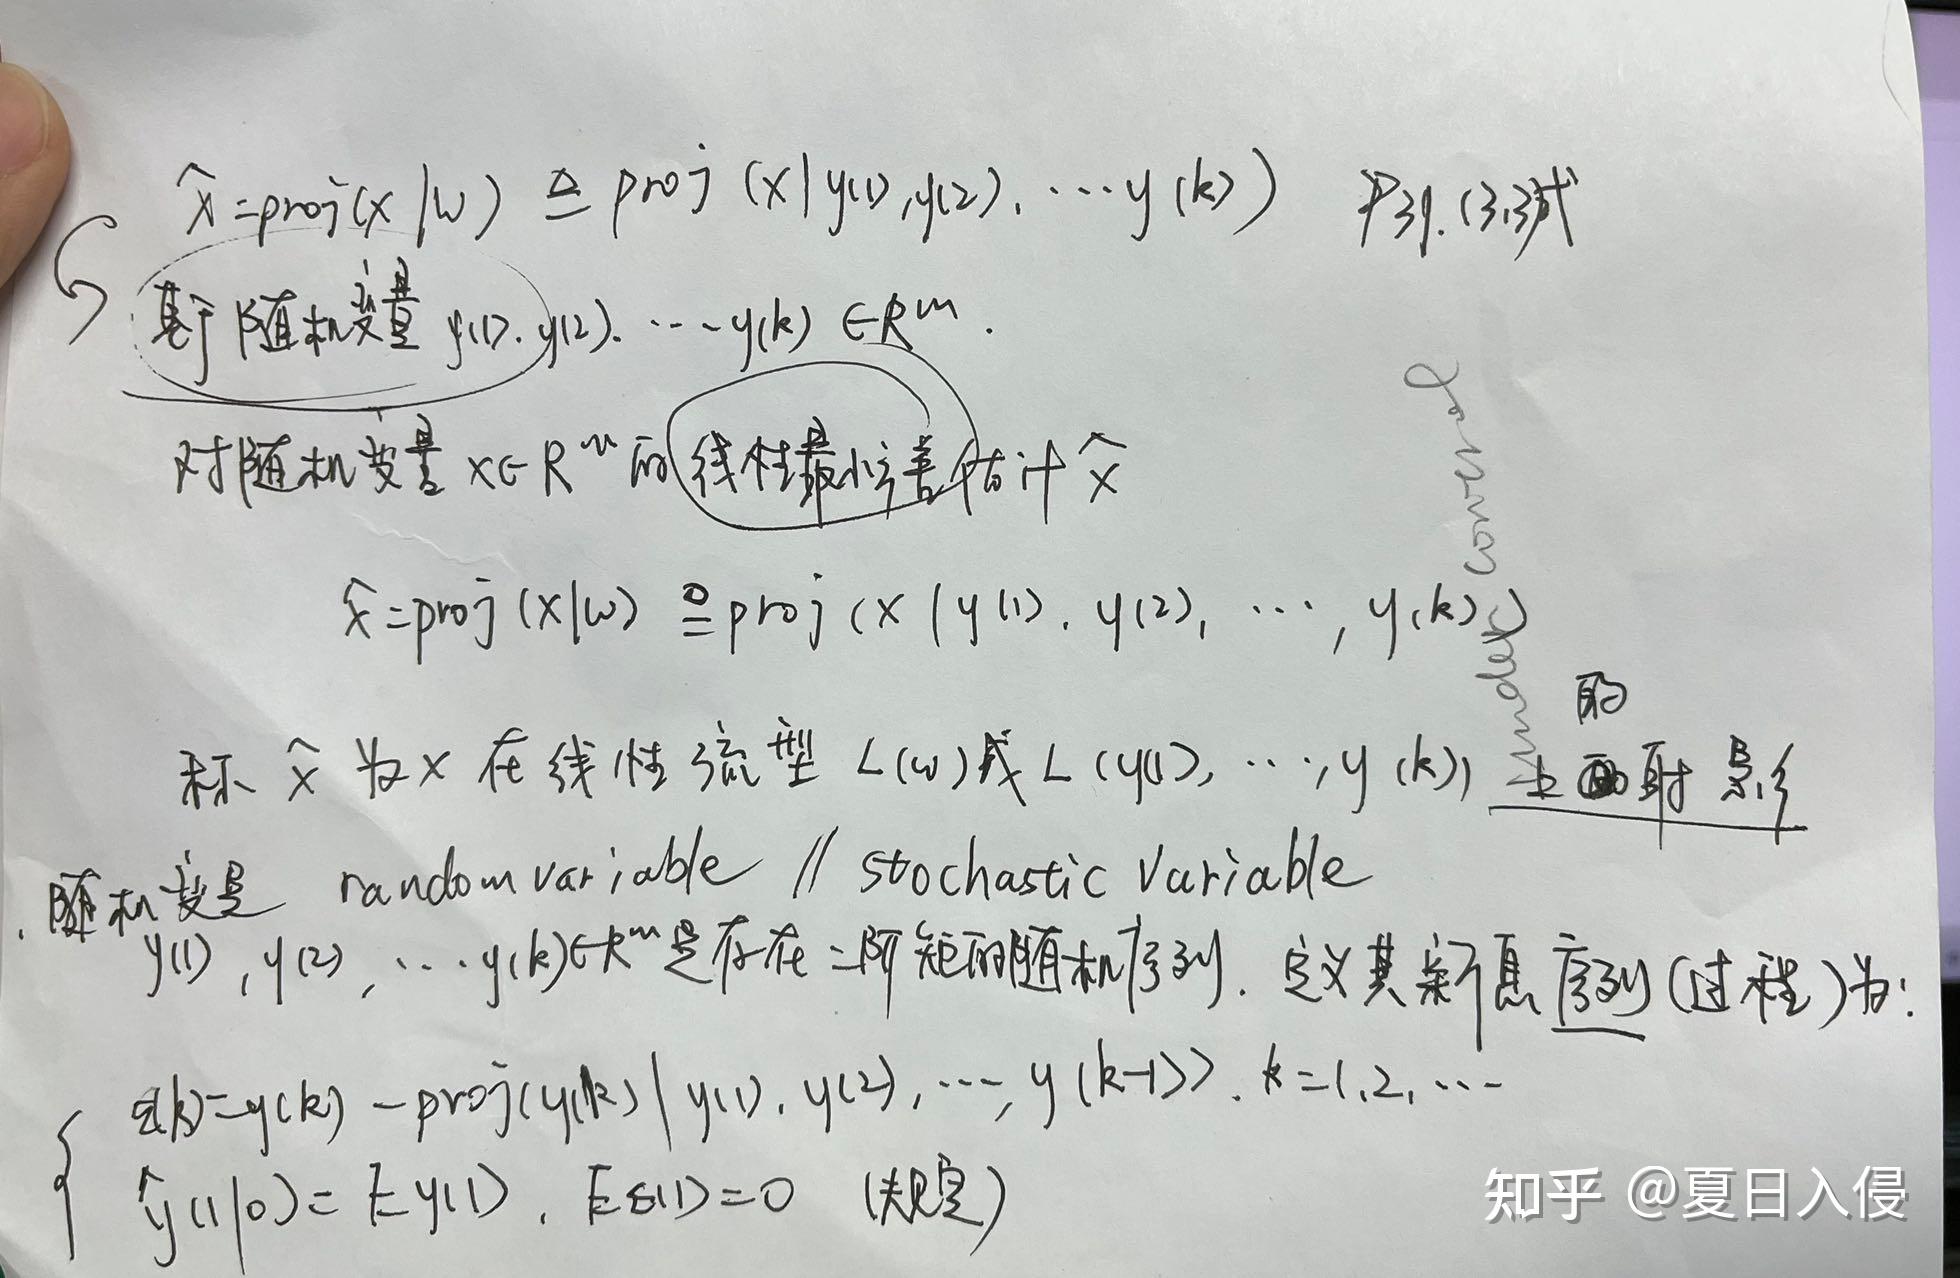 x̂=proj(x|w) ≜ proj(x|y(1),y(2),…y(k)) P39.(3.3)式
基于随机变量 y(1).y(2).…y(k)∈Rᵐ.
对随机变量 x∈Rⁿ的线性最小方差估计 x̂
x̂=proj(x|w) ≜ proj(x|y(1).y(2),…,y(k))
under control
的
称 x̂ 为 x 在线性流型 L(w)或 L(y(1),…,y(k)) 上 射影
随机变量 random variable // stochastic variable
y(1),y(2),…y(k)∈Rᵐ是存在二阶矩的随机序列.定义其新息序列(过程)为:
ε(k)=y(k)-proj(y(k)|y(1).y(2),…,y(k-1)). k=1.2.…
ŷ(1|0)=Ey(1). Eε(1)=0 (规定)
知乎 @夏日入侵